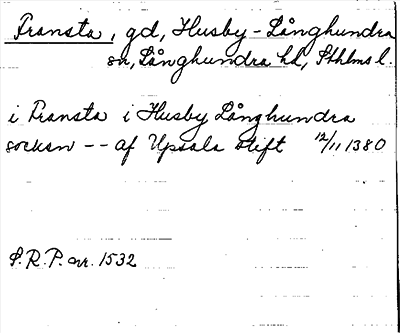 Fransta, gd, Husby-Långhundra
sn, Långhundra hd, Sthlms l.
i Fransta i Husby Långhundra
socken -- af Upsala stift 12/11 1380
S.R.P. nr. 1532